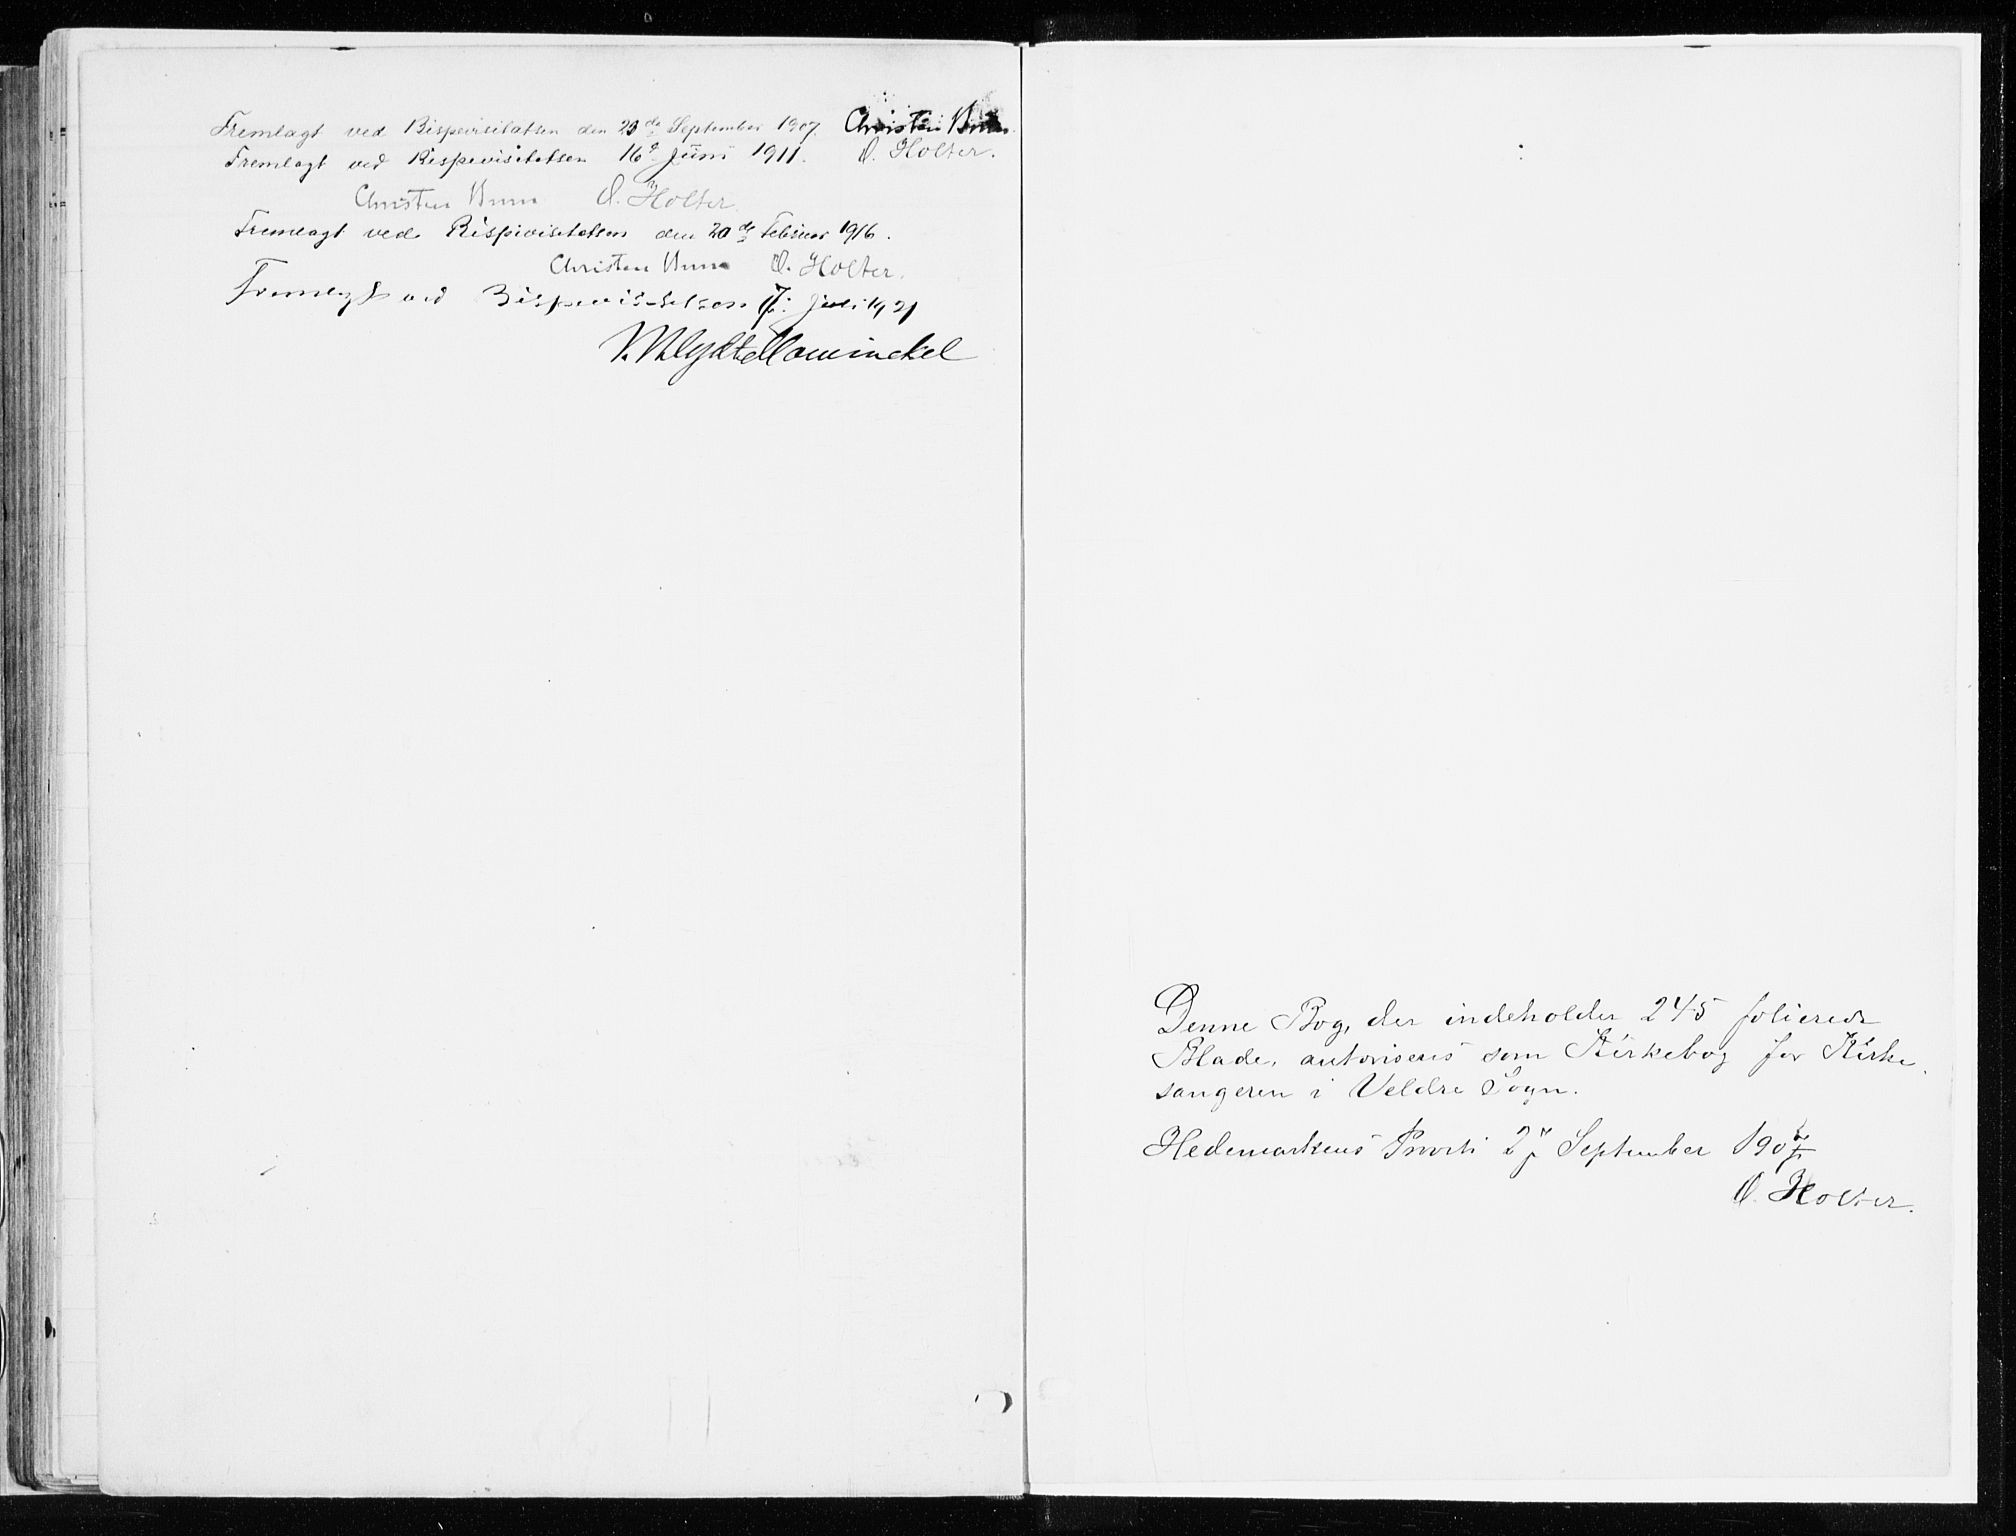 Fremlagt ved Bispevisitatsen den 29de September 1907. Christen Brun
O. Holter.
Fremlagt ved Bispevisitatsen 16de Juni 1911.
Christen Brun O. Holter.
Fremlagt ved Bispevisitatsen den 20de Februar 1916.
Christen Brun O. Holter.
Fremlagt ved Bispevisitatsen Juli 1921
Mowinckel
Denne Bog, der indeholder 245 folierede
Blade, autoriseres som Kirkebog for Kirke
sangeren i Veldre Sogn.
Hedemarkens Provsti September 1907
O. Holter.